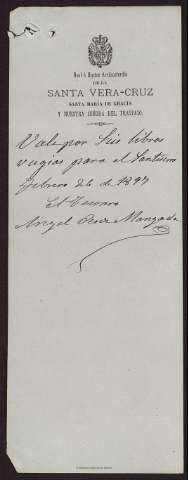 Real é Ilustre Archicofradía
DE LA
SANTA VERA-CRUZ
SANTA MARÍA DE GRACIA
Y NUESTRA SEÑORA DEL TRASPASO.
Vale por Seis libras
vugias para el Santísimo
Febrero 26 de 1897
El Tesorero
Angel